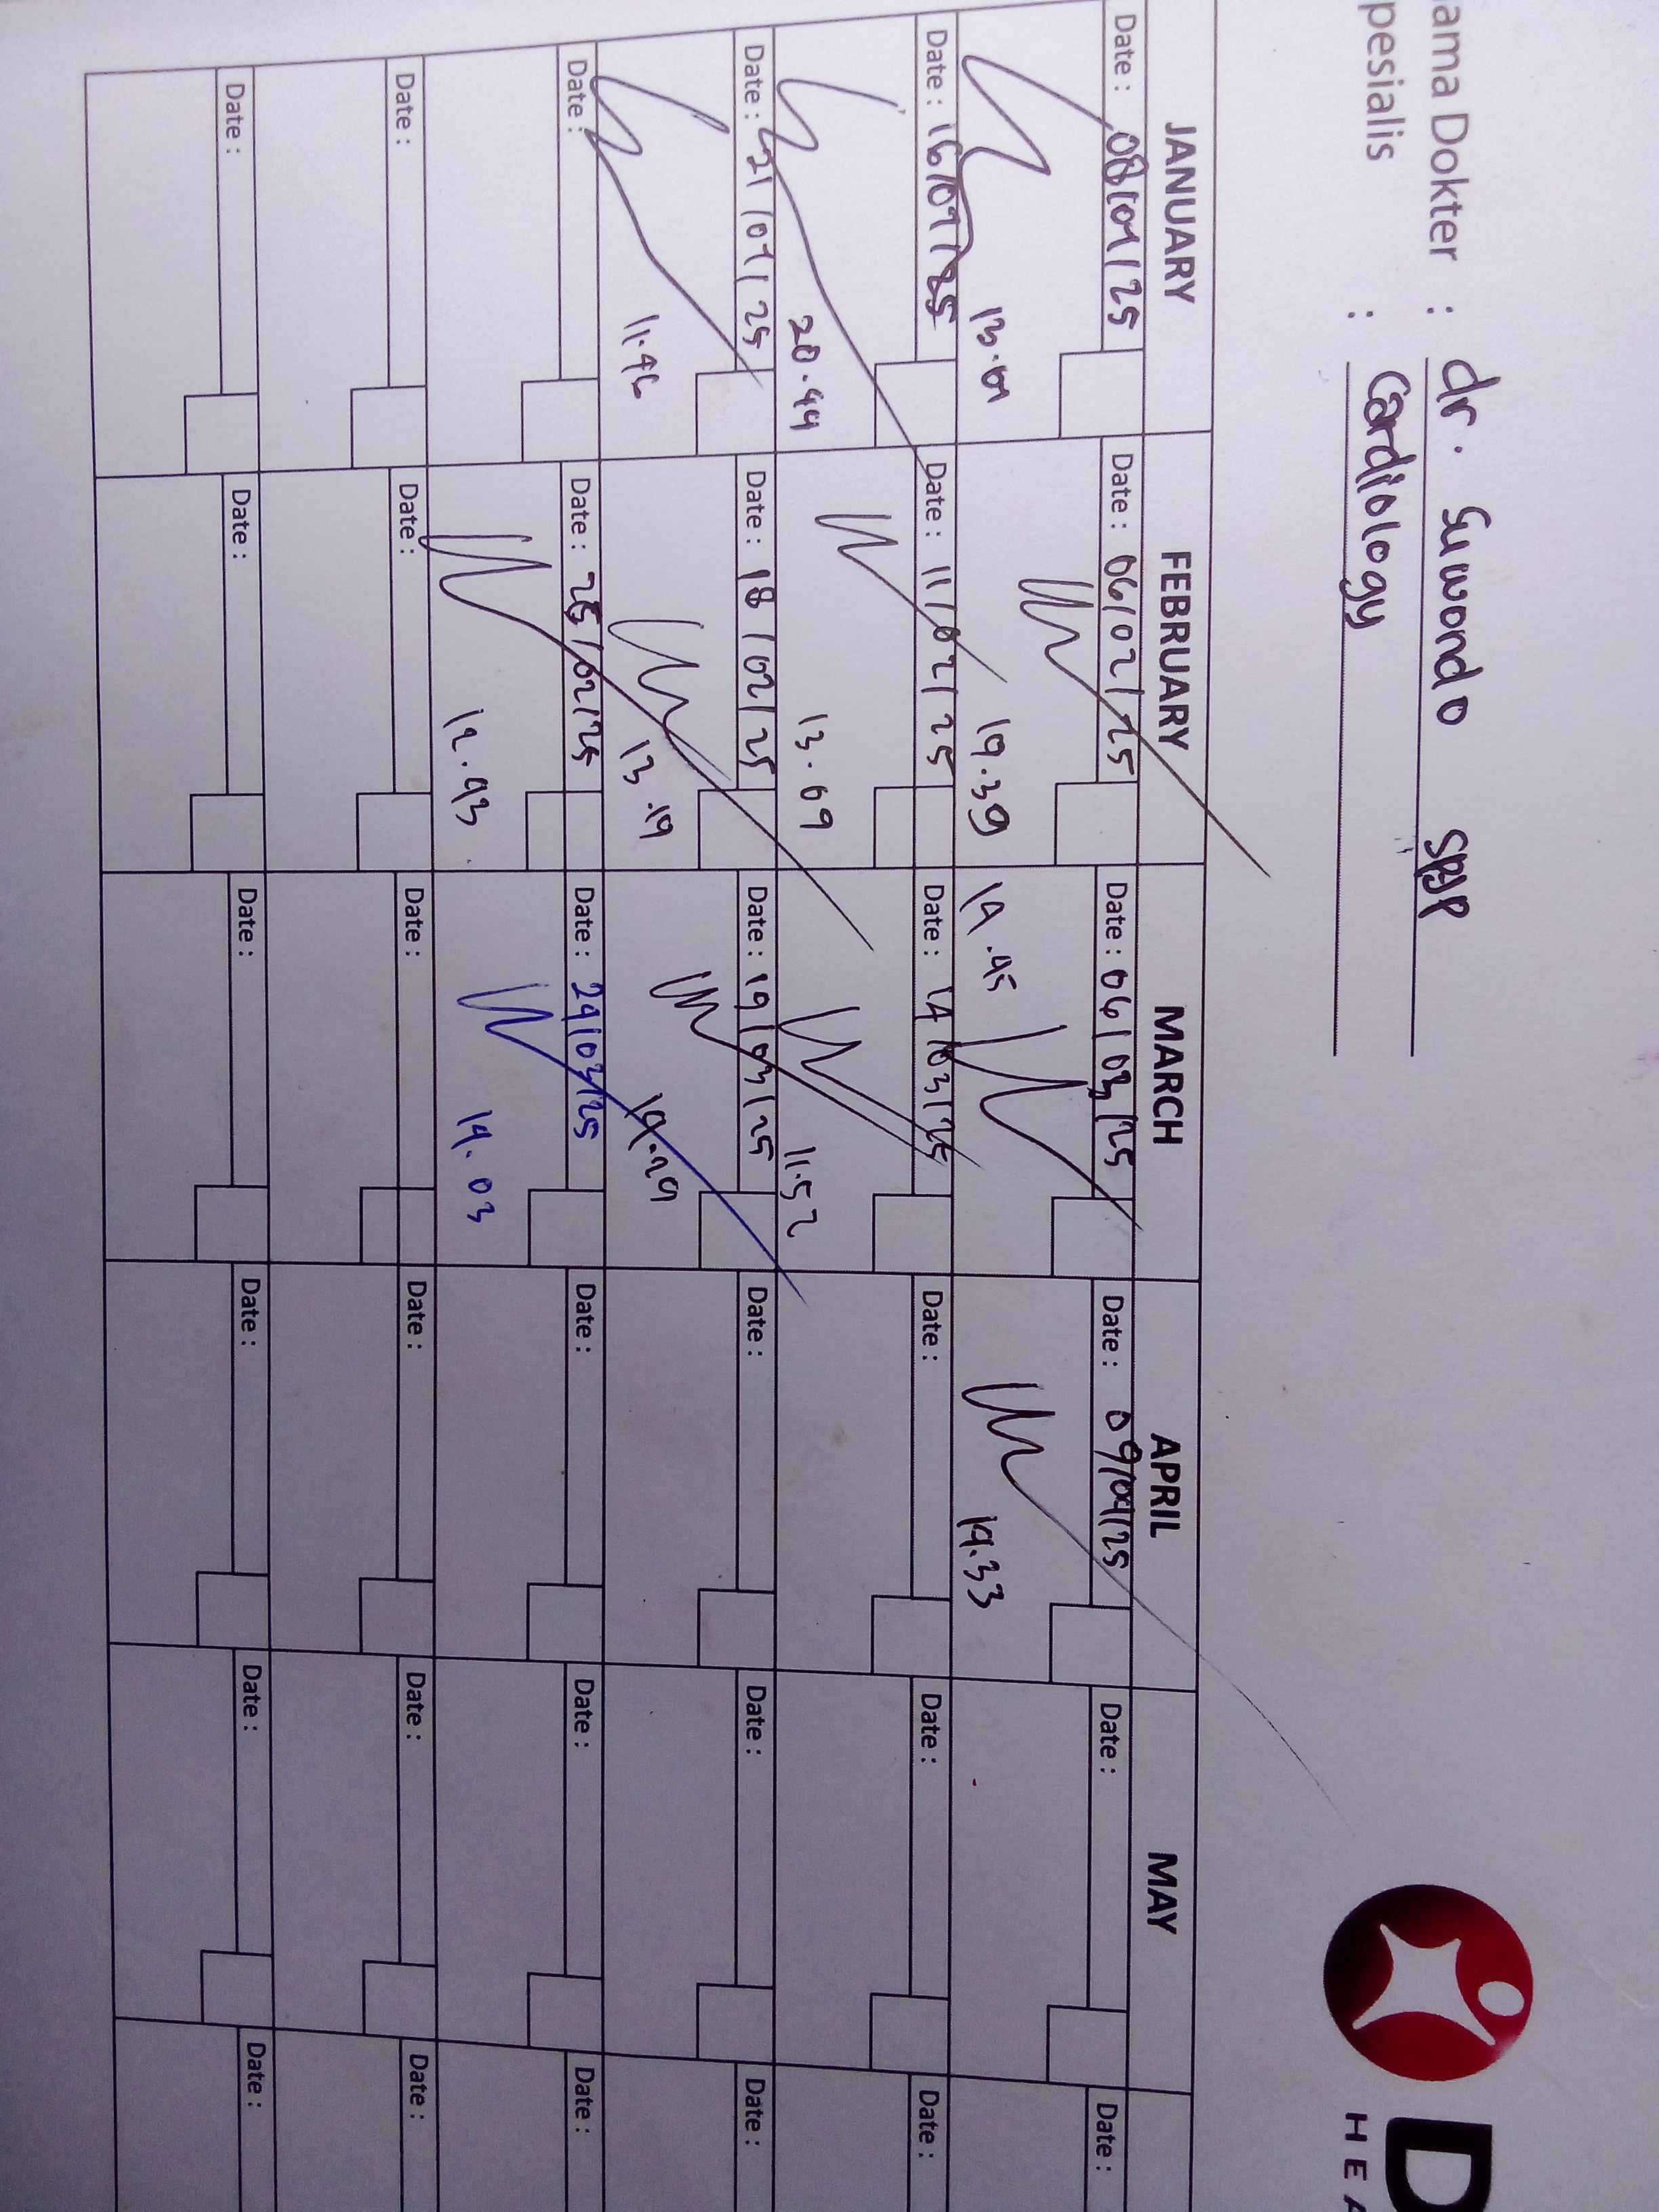 ama Dokter : dr. Suwondo SpJP
pesialis : Cardiology
D
HEA
JANUARY FEBRUARY MARCH APRIL MAY
Date : 08/01/25 Date : 06/02/25 Date : 06/03/25 Date : 09/04/25 Date : Date :
19.39 14.45 14.33
Date : 16/01/25 Date : 11/02/25 Date : 14/03/25 Date : Date : Date :
20.44 13.09 11.52
Date : 21/01/25 Date : 18/02/25 Date : 19/03/25 Date : Date : Date :
11.46 13.19 14.29
Date : Date : 25/02/25 Date : 24/03/25 Date : Date : Date :
12.43 14.03
Date : Date : Date : Date : Date : Date :
Date : Date : Date : Date : Date : Date :